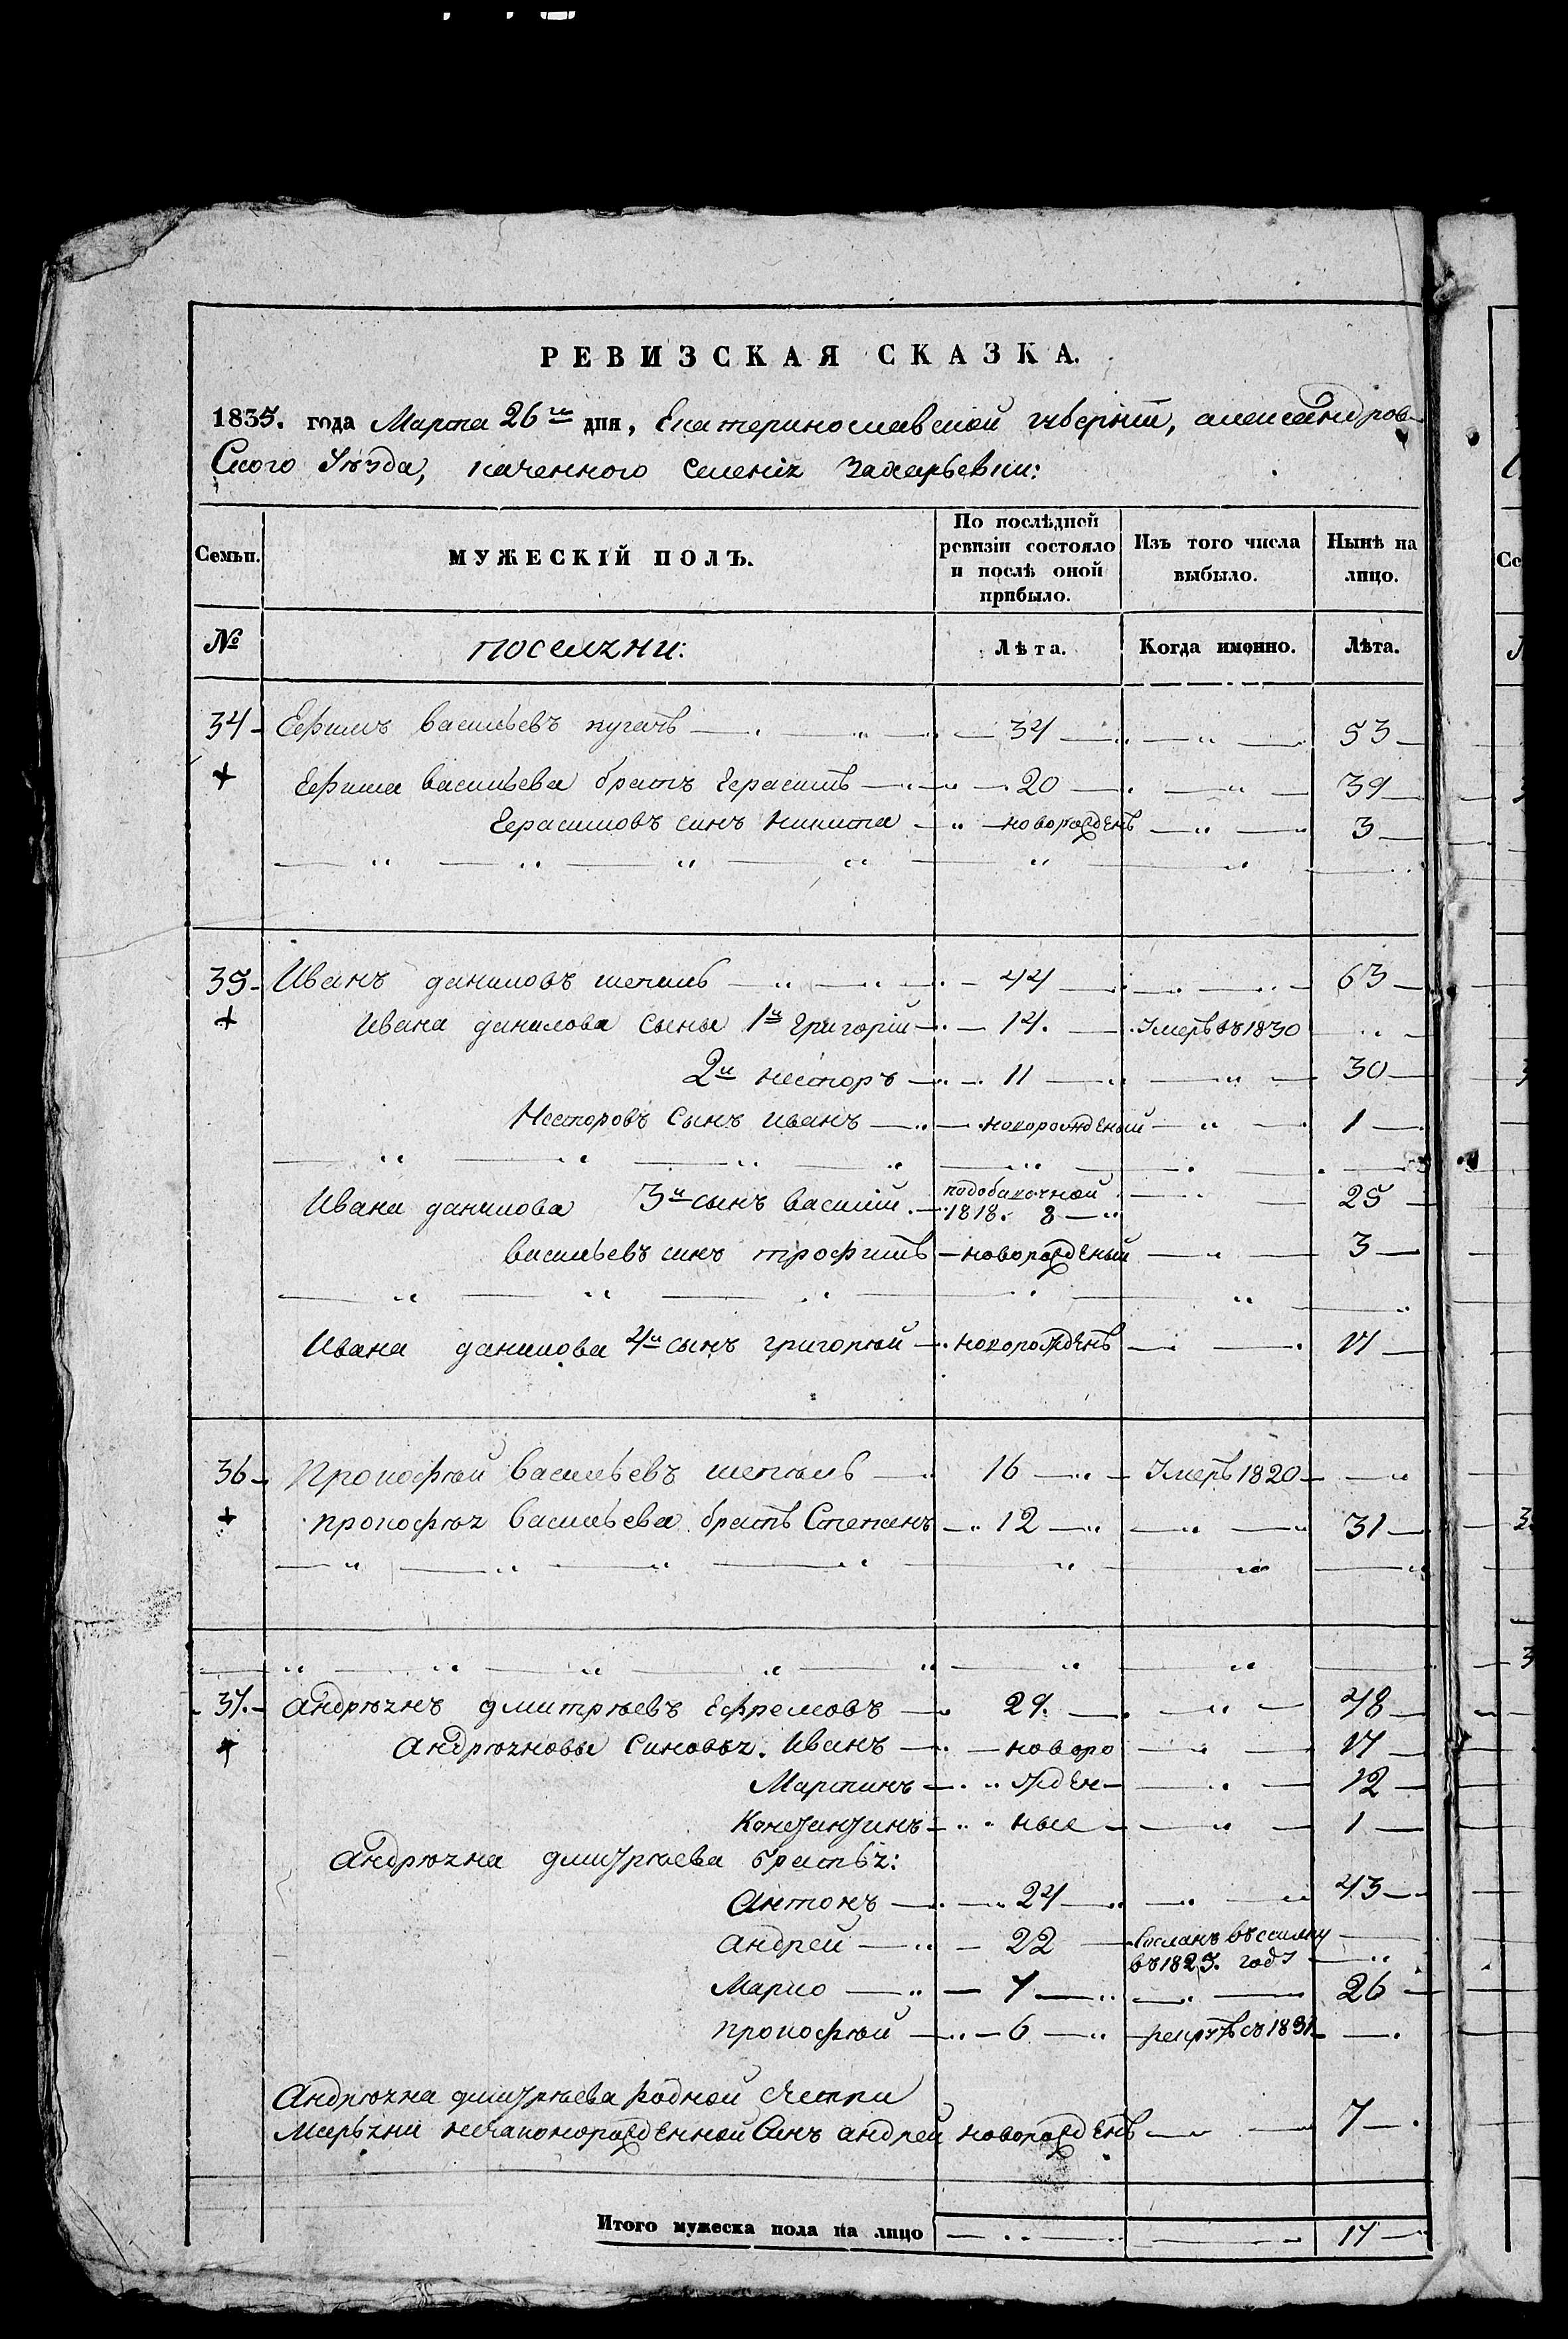 РЕВИЗСКАЯ СКАЗКА.
1835. года Марта 26го дня, Екатеринославской губернїи, александров-
Ского Уѣзда, казенного селенія Захарьевки:
Семьи. МУЖЕСКІЙ ПОЛЪ. По послѣдней ревизіи состояло и послѣ оной прибыло. Изъ того числа выбыло. Нынѣ на лицо.
№ поселяни: Лѣта. Когда именно. Лѣта.
34 Ефимъ васильевъ пугачъ 34 53
Ефима васильева братъ Герасимъ 20 39
Герасимовъ синъ никита новорожденъ 3
35 Иванъ даниловъ шепиль 44 63
Ивана данилова сыны 1й Григорій 14. Умеръ въ 1830
2й несторъ 11 30
Несторовъ Сынъ иванъ новорожденый 1
Ивана данилова 3й сынъ василій. 1818. 8 25
васильевъ синъ трофимъ новорожденый 3
Ивана данилова 4й сынъ григорій новорожденъ 17
36 Прокофій васильевъ шепиль 16 Умеръ 1820
прокофія васильева братъ Степанъ 12 31
37. андріянъ дмитріевъ Ефремовъ 29. 48
Андріяновы Синовья. Иванъ новоро 17
Мартинъ жден 12
Константинъ ные 1
Андріяна дмитріева братья:
Антонъ 24 43
андрей 22 Сосланъ въ ссилку въ 1825. году
Марко 7 26
прокофій 6 рекрутъ съ 1831
Андріяна дмитріева родной сестри
Марьяни незаконорожденной Синъ андрей новорожденъ 7
Итого мужеска пола на лицо 17